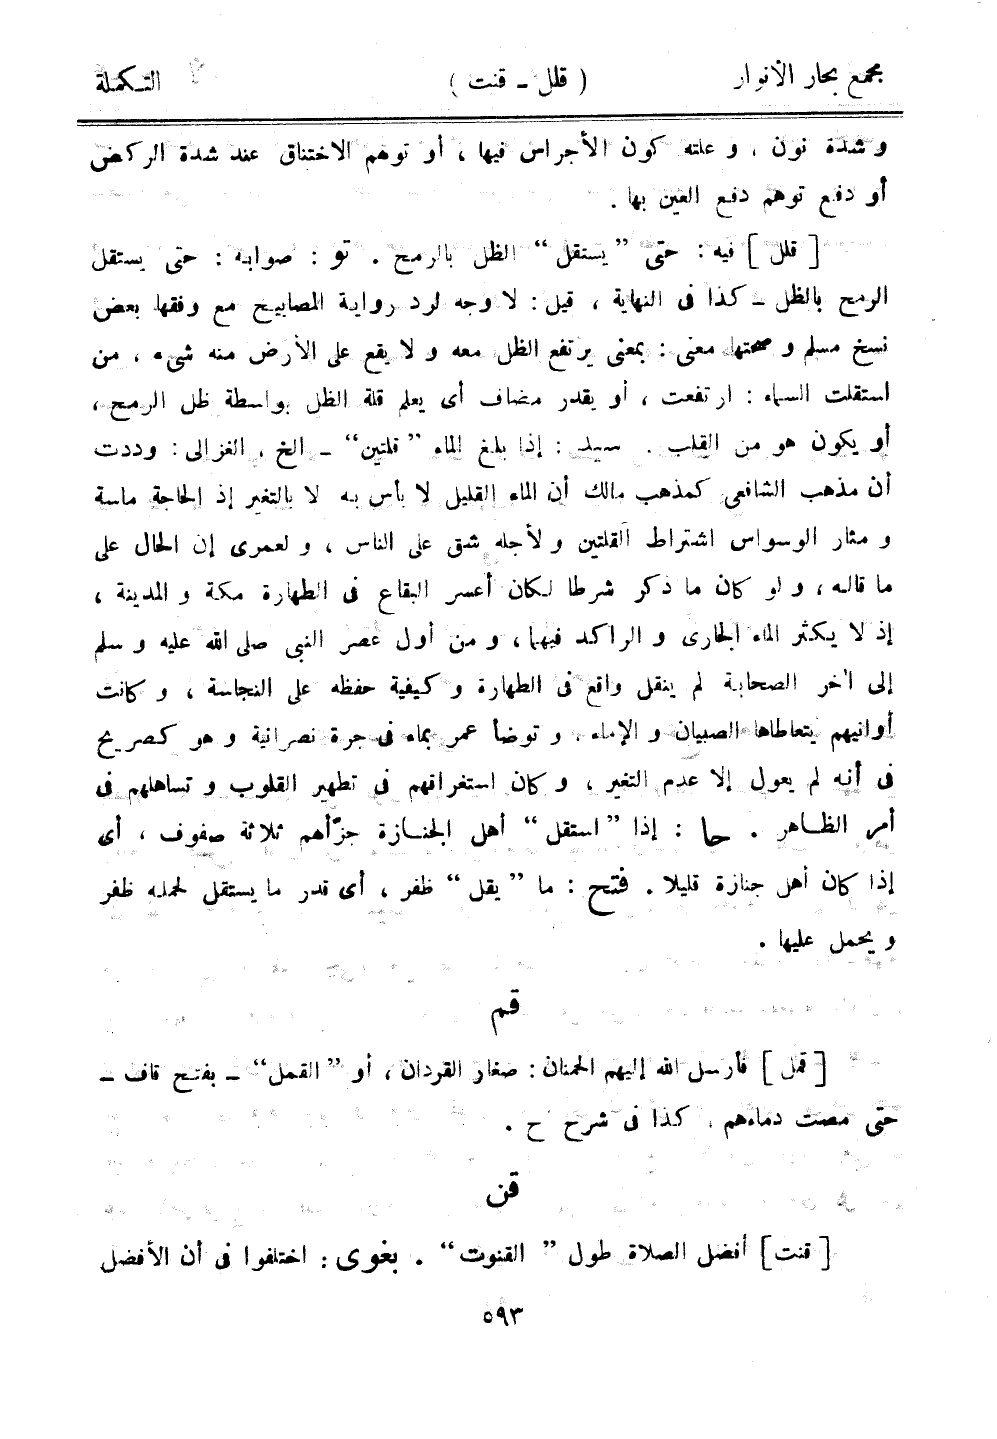 مجمع بحار الأنوار ( قلل ـ قنت ) التكملة
و شدة نون ، و علته كون الأجراس فيها ، أو توهم الاختناق عند شدة الركض
أو دفع توهم دفع العين بها .
[ قلل ] فيه : حتى ” يستقل “ الظل بالرمح . تو : صوابه : حتى يستقل
الرمح بالظل ـ كذا فى النهاية ، قيل : لا وجه لرد رواية المصابيح مع وفقها بعض
نسخ مسلم و صحتها معنى : بمعنى يرتفع الظل معه و لا يقع على الأرض منه شىء ، من
استقلت السماء : ارتفعت ، أو يقدر مضاف أى يعلم قلة الظل بواسطة ظل الرمح ،
أو يكون هو من القلب . سيد : إذا بلغ الماء ” قلتين “ ـ الخ ، الغزالى : وددت
أن مذهب الشافعى كمذهب مالك أن الماء القليل لا بأس به لا بالتغير إذ الحاجة ماسة
و مثار الوسواس اشتراط القلتين و لأجله شق على الناس ، و لعمرى إن الحال على
ما قاله ، و لو كان ما ذكر شرطا لكان أعسر البقاع فى الطهارة مكة و المدينة ،
إذ لا يكثر الماء الجارى و الراكد فيهما ، و من أول عصر النبى صلى الله عليه و سلم
إلى آخر الصحابة لم ينقل واقع فى الطهارة و كيفية حفظه على النجاسة ، و كانت
أوانيهم يتعاطاها الصبيان و الإماء ، و توضأ عمر بماء فى جرة نصرانية و هو كصريح
فى أنه لم يعول إلا عدم التغير ، و كان استغراقهم فى تطهير القلوب و تساهلهم فى
أمر الظاهر . حا : إذا ” استقل “ أهل الجنازة جزّأهم ثلاثة صفوف ، أى
إذا كان أهل جنازة قليلا . فتح : ما ” يقل “ ظفر ، أى قدر ما يستقل لحمله ظفر
و يحمل عليها .
قم
[ قمل ] فأرسل الله إليهم الحمنان : صغار القردان ، أو ” القمل “ ـ بفتح قاف ـ
حتى مصت دماءهم . كذا فى شرح ح .
قن
[ قنت ] أفضل الصلاة طول ” القنوت “ . بغوى : اختلفوا فى أن الأفضل
٥٩٣